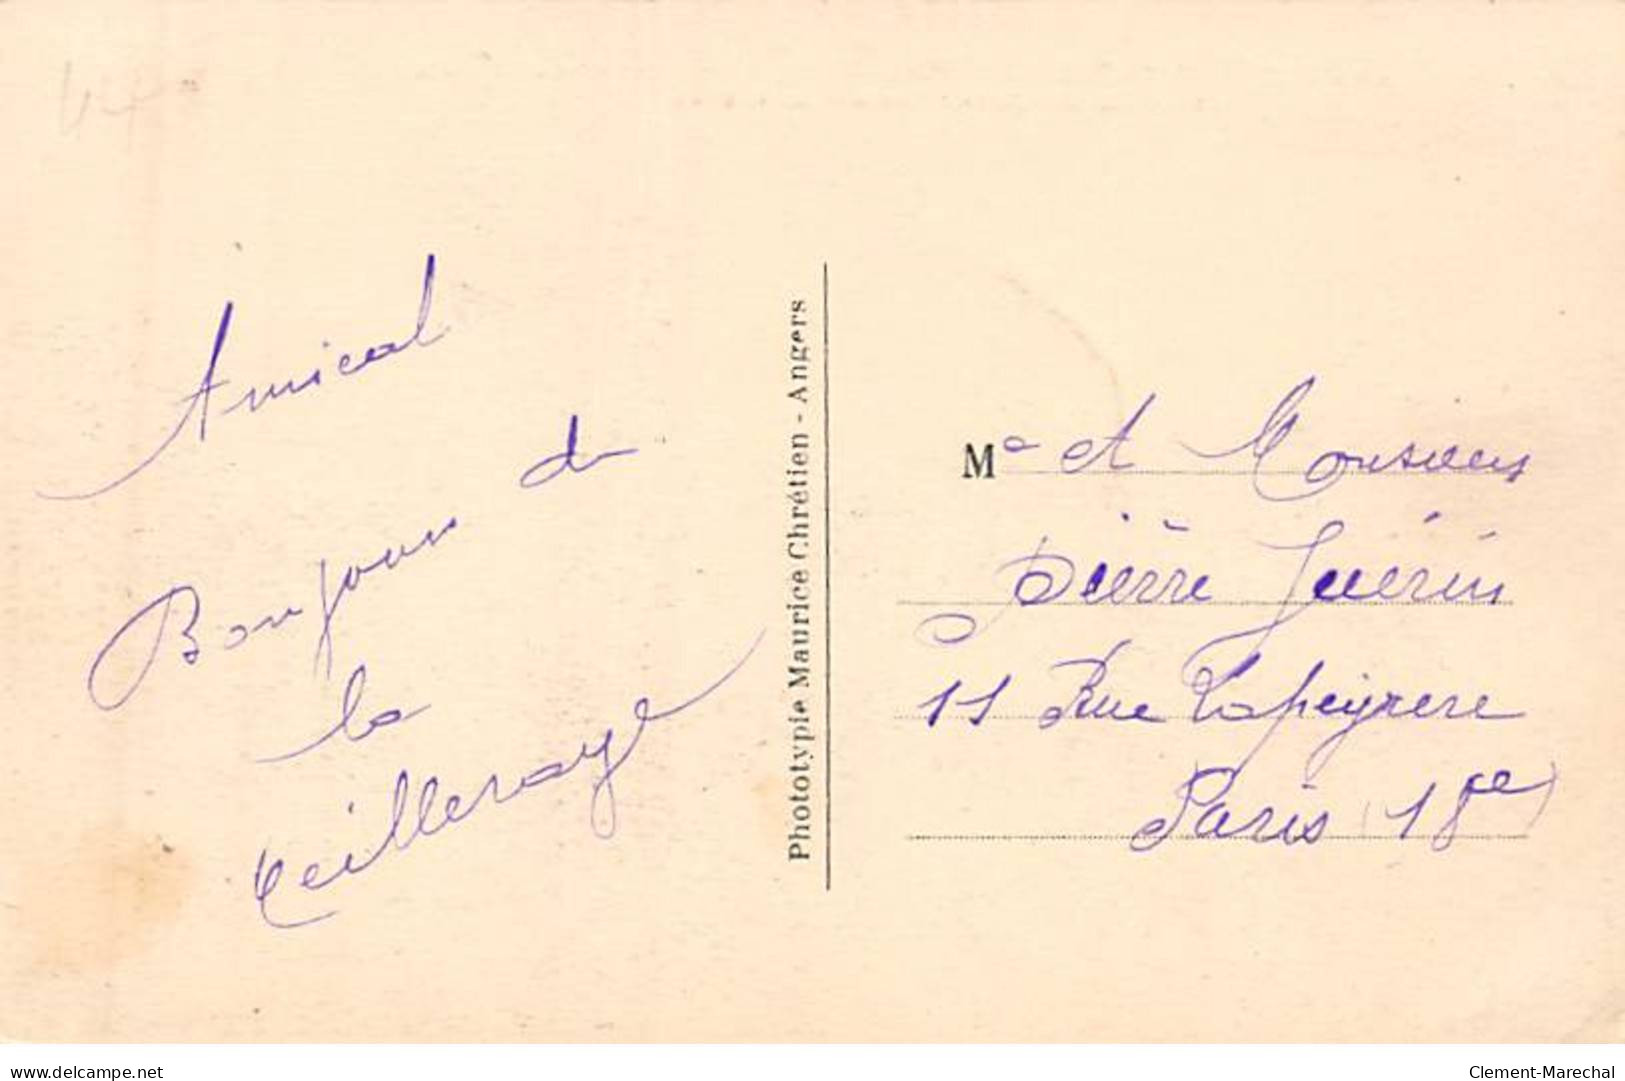 44
Amical
Bonjour de
la
Meilleraye
Phototypie Maurice Chrétien - Angers
Me et Monsieur
Pierre Guérin
11 Rue Lapeyrere
Paris (18e)
delcampe.net
Clement-Marechal